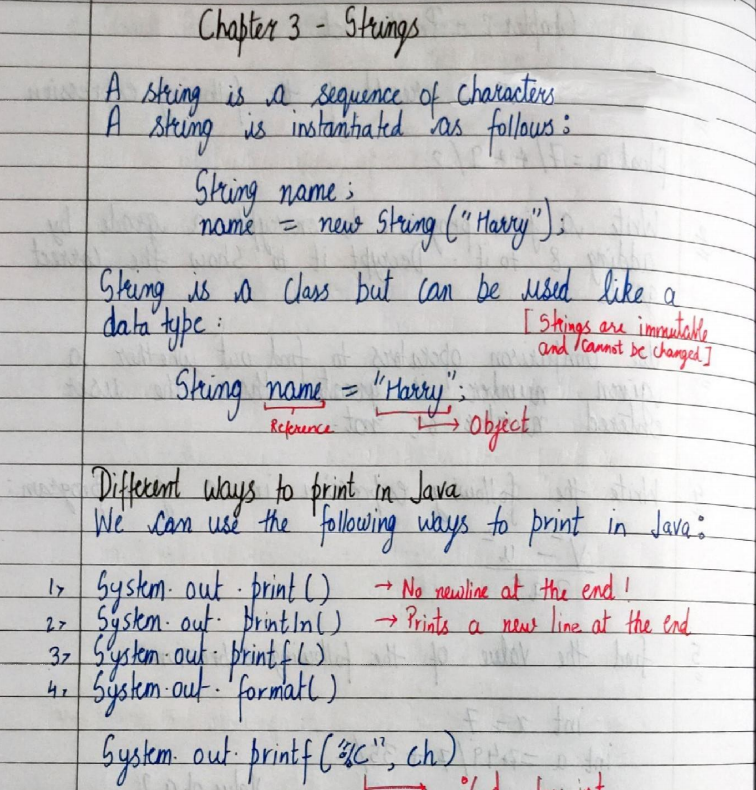 Chapter 3 - Strings
A string is a sequence of characters
A string is instantiated as follows:
String name;
name = new String ("Harry");
String is a class but can be used like a
data type:
[Strings are immutable
and cannot be changed]
String name = "Harry";
Reference
→ Object
Different ways to print in Java
We can use the following ways to print in Java:
1> System.out.print() → No newline at the end!
2> System.out.println() → Prints a new line at the end
3> System.out.printf()
4. System.out.format()
System.out.printf("%c", ch)